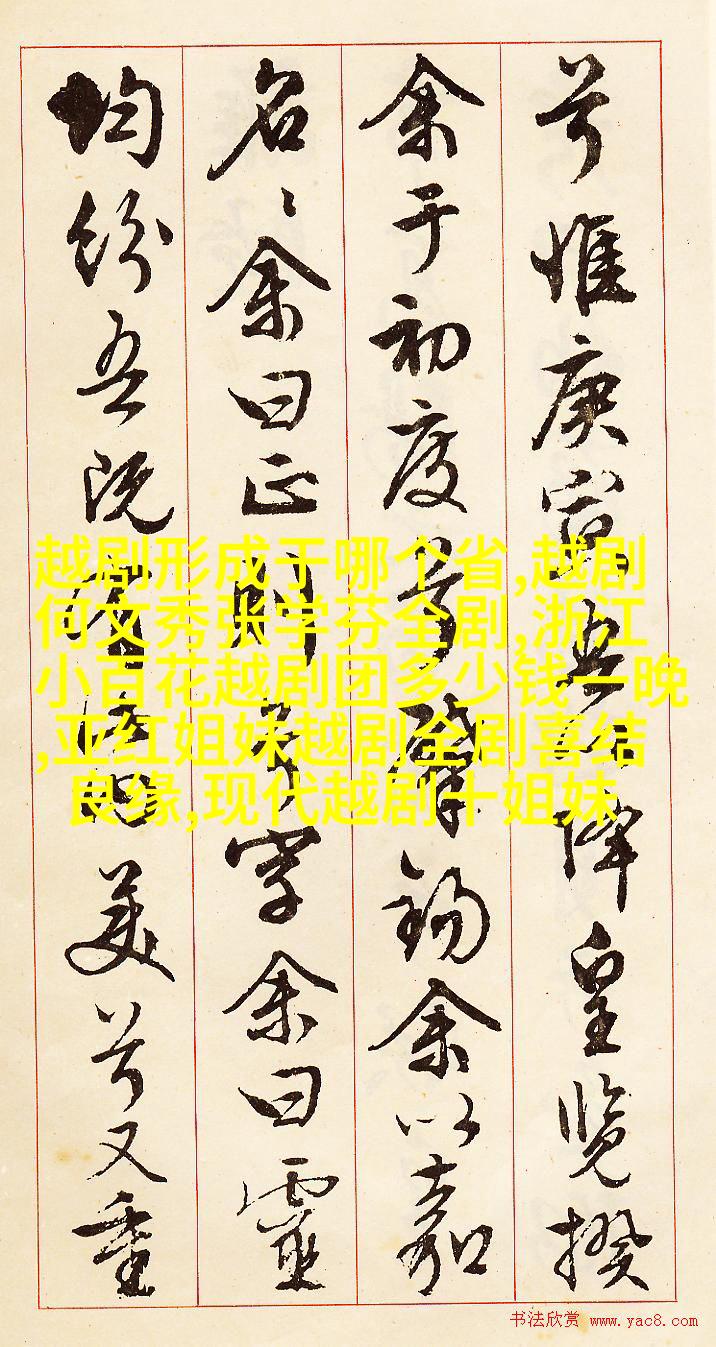 兮惟庚寅吾以降皇覽揆
余于初度兮肇錫余以嘉
名〻余曰正則兮字余曰靈
均紛吾既有此內美兮又重
越剧形成于哪个省,越剧
何文秀张学芬全剧,浙江
小百花越剧团多少钱一晚
,亚红姐妹越剧全剧喜结
良缘,现代越剧十姐妹
书法欣赏 www.yac8.com